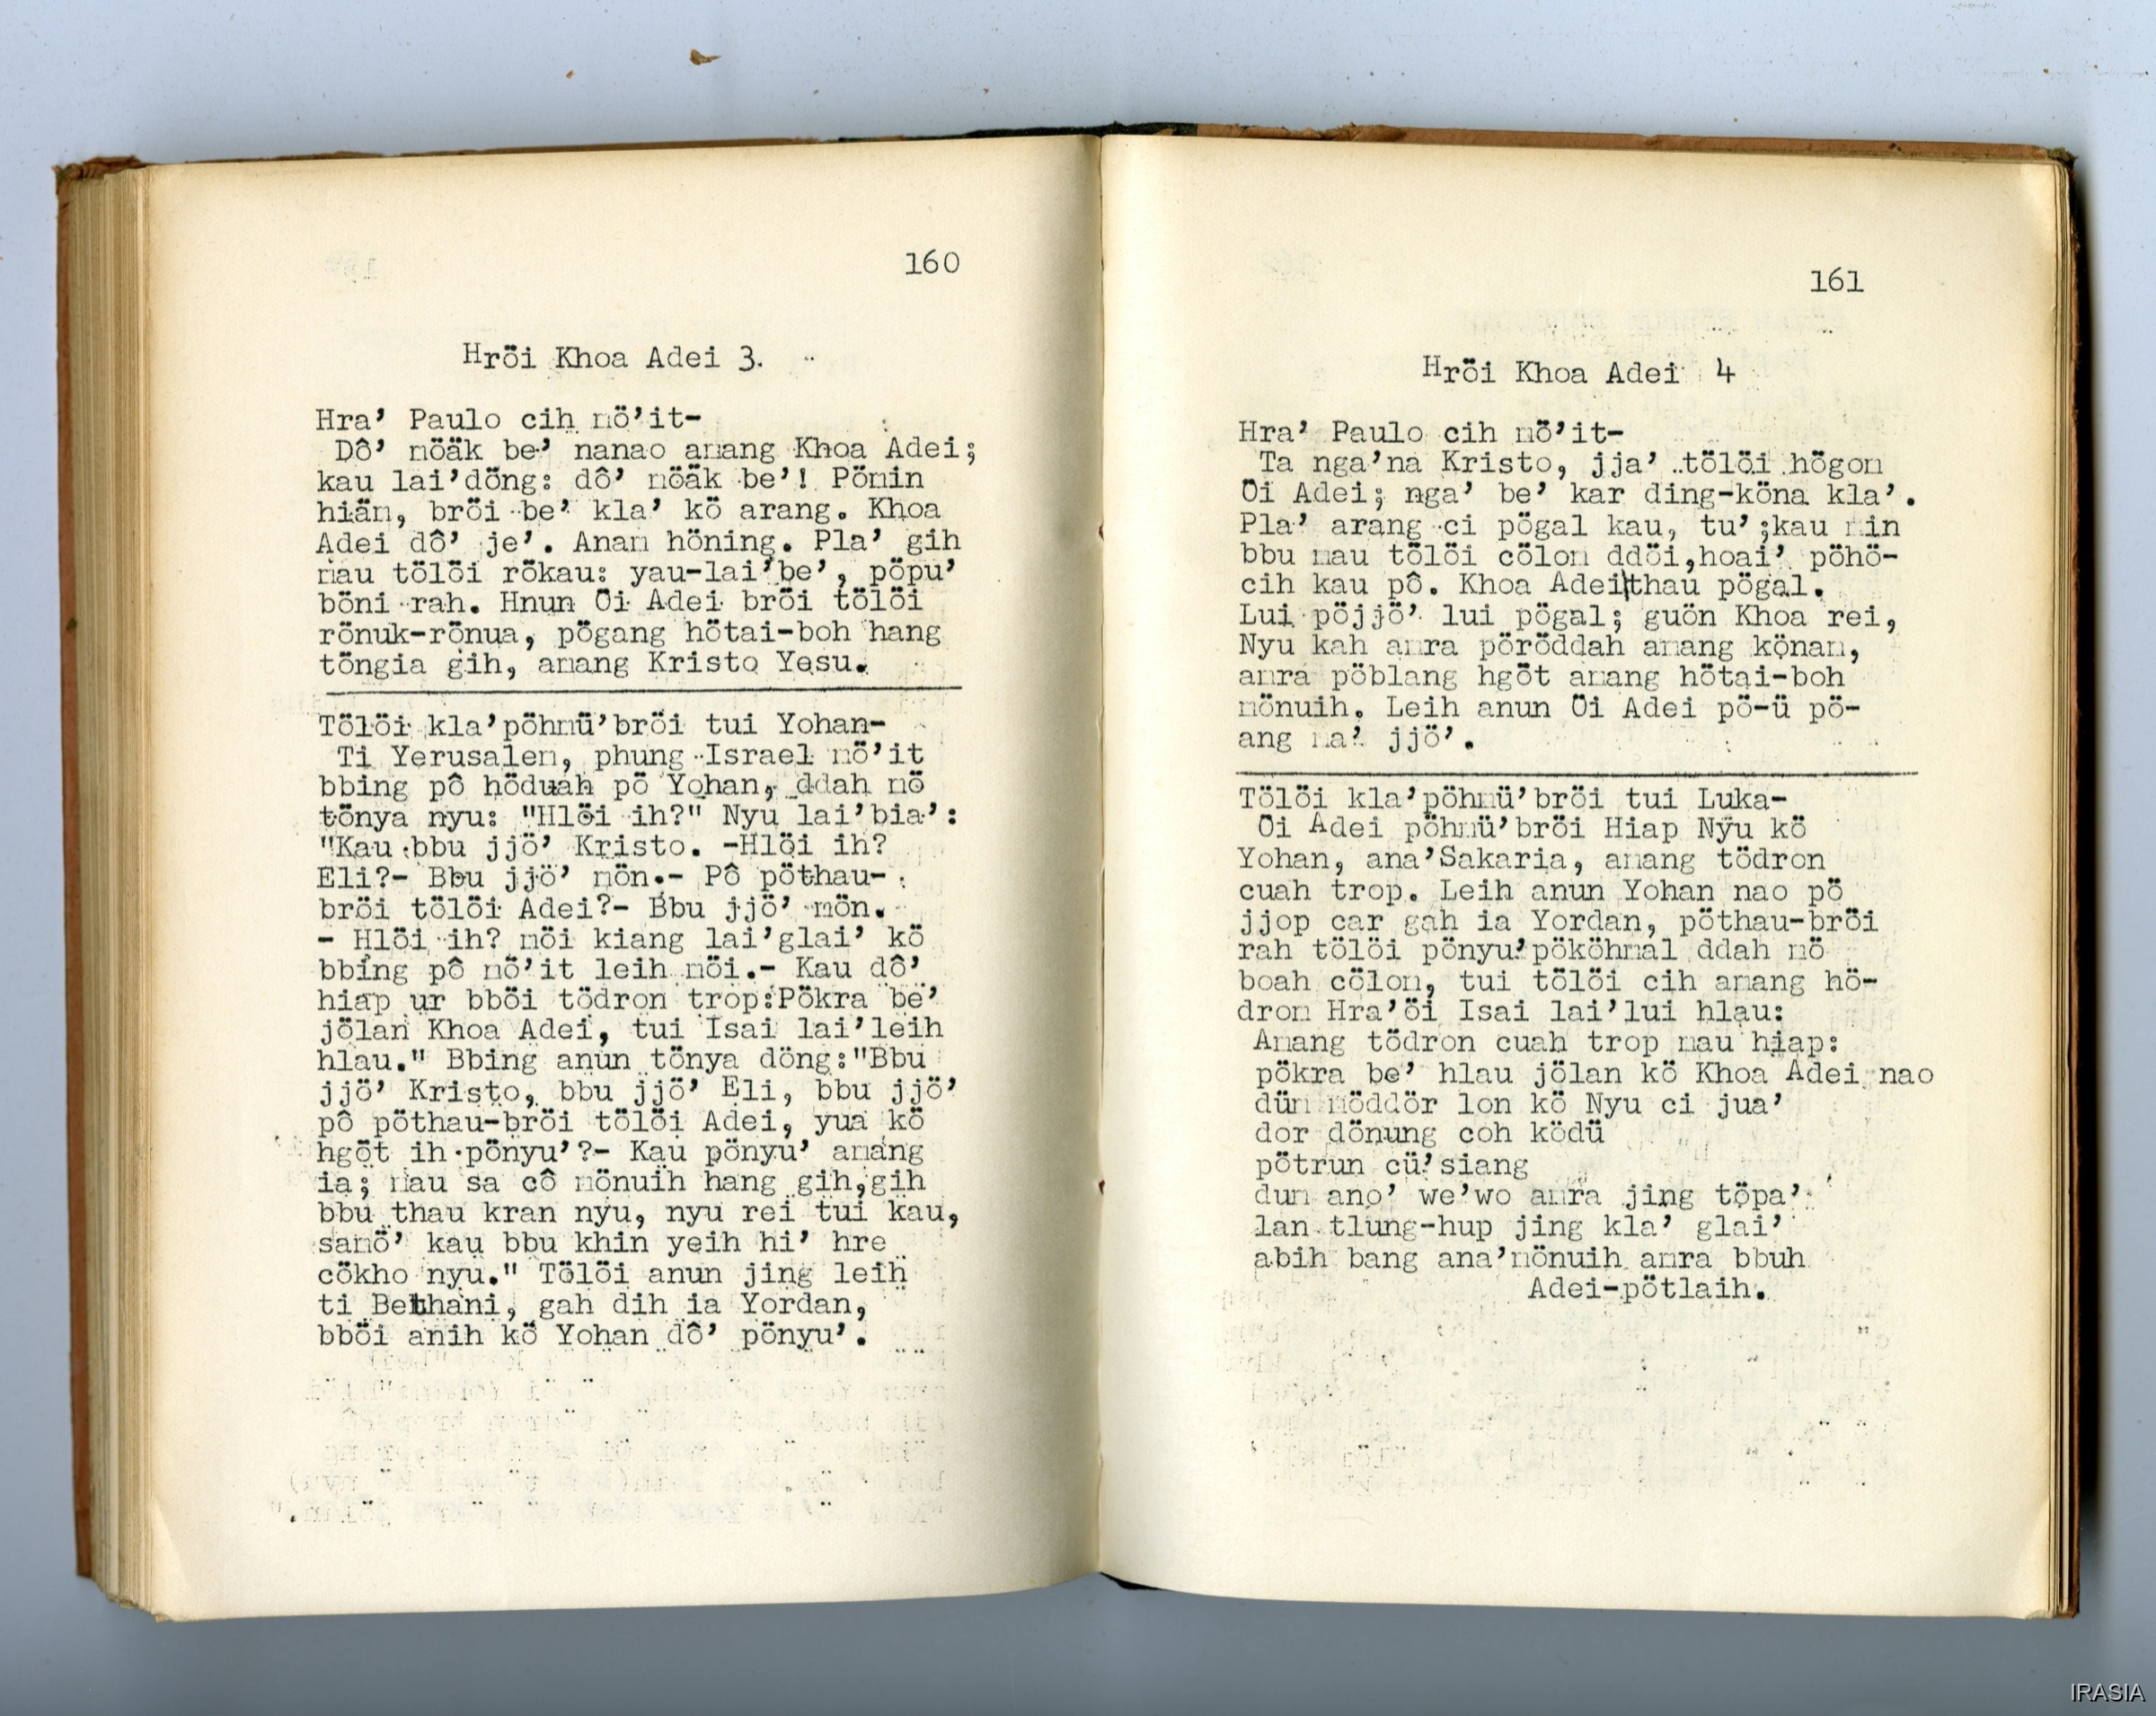 160
Hröi Khoa Adei 3.
Hra' Paulo cih mö'it-
Dô' möäk be' nanao amang Khoa Adei;
kau lai'döng: dô' möäk be'! Pömin
hiäm, bröi be' kla' kö arang. Khoa
Adei dô' je'. Anam höning. Pla' gih
mau tölöi rökau: yau-lai'be', pöpu'
böni rah. Hnun Öi Adei bröi tölöi
rönuk-rönua, pögang hötai-boh hang
töngia gih, amang Kristo Yesu.
Tölöi kla'pöhmü'bröi tui Yohan-
Ti Yerusalem, phung Israel mö'it
bbing pô höduah pö Yohan, ddah mö
tönya nyu: "Hlöi ih?" Nyu lai'bia':
"Kau bbu jjö' Kristo. -Hlöi ih?
Eli?- Bbu jjö' mön.- Pô pöthau-
bröi tölöi Adei?- Bbu jjö' mön.
- Hlöi ih? möi kiang lai'glai' kö
bbing pô mö'it leih möi.- Kau dô'
hiap ur bböi tödron trop:Pökra be'
jölan Khoa Adei, tui Isai lai'leih
hlau." Bbing anun tönya döng:"Bbu
jjö' Kristo, bbu jjö' Eli, bbu jjö'
pô pöthau-bröi tölöi Adei, yua kö
hgöt ih pönyu'?- Kau pönyu' amang
ia; mau sa cô mönuih hang gih,gih
bbu thau kran nyu, nyu rei tui kau,
samö' kau bbu khin yeih hi' hre
cökho nyu." Tölöi anun jing leih
ti Bethani, gah dih ia Yordan,
bböi anih kö Yohan dô' pönyu'.
161
Hröi Khoa Adei 4
Hra' Paulo cih mö'it-
Ta nga'na Kristo, jja' tölöi högom
Öi Adei; nga' be' kar ding-köna kla'.
Pla' arang ci pögal kau, tu' ;kau min
bbu mau tölöi cölom ddöi,hoai' pöhö-
cih kau pô. Khoa Adei thau pögal.
Lui pöjjö' lui pögal; guön Khoa rei,
Nyu kah amra pöröddah amang könam,
amra pöblang hgöt amang hötai-boh
mönuih. Leih anun Öi Adei pö-ü pö-
ang ma' jjö'.
Tölöi kla'pöhmü'bröi tui Luka-
Öi Adei pöhmü'bröi Hiap Nyu kö
Yohan, ana'Sakaria, amang tödron
cuah trop. Leih anun Yohan nao pö
jjop car gah ia Yordan, pöthau-bröi
rah tölöi pönyu'pököhmal ddah mö
boah cölom, tui tölöi cih amang hö-
drom Hra'öi Isai lai'lui hlau:
Amang tödron cuah trop mau hiap:
pökra be' hlau jölan kö Khoa Adei nao
düm möddör lon kö Nyu ci jua'
dor dönung coh ködü
pötrun cü' siang
dum ano' we'wo amra jing töpa'
lan tlung-hup jing kla' glai'
abih bang ana'mönuih amra bbuh
Adei-pötlaih.
IRASIA